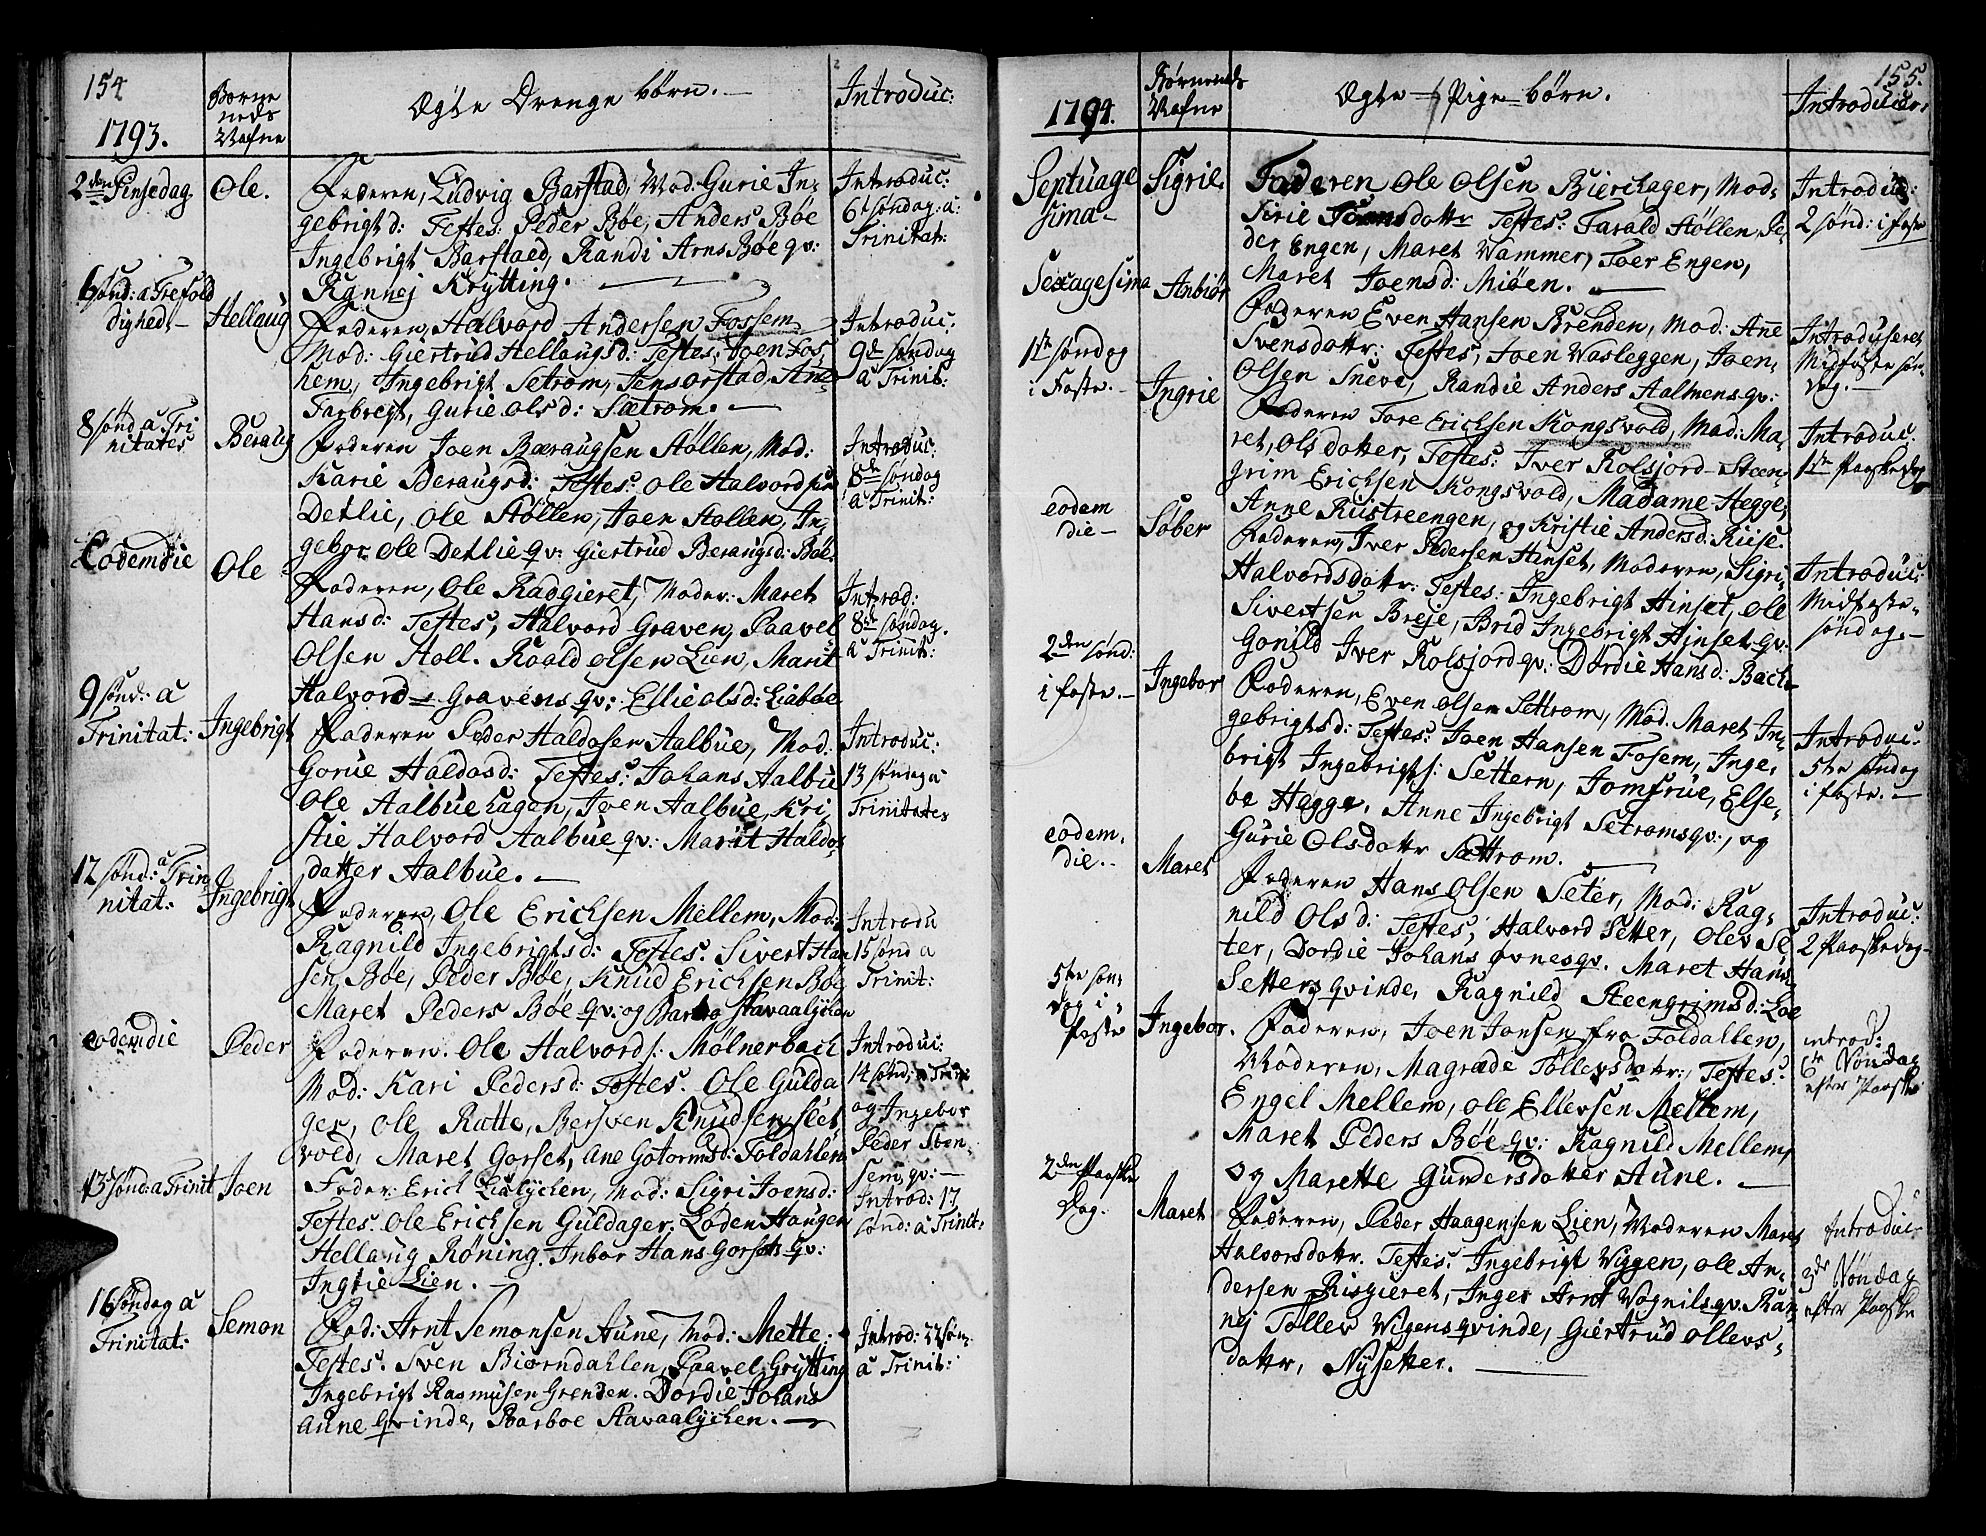 154
1793.
Børne
neds
Nafne
Ægte Drenge børn. —
Introduc:
2den Pinsedag
Ole.
Faderen, Ludvig Barstad, Mod: Gurie In-
gebrigtd: Testes: Peder Bøe, Anders Bøe
Ingebrigt Barstaed, Randi Arns Bøe qv:
Rannej Krytting. —
Introduc:
6te søndag: a:
Trinitat:
6 sønd: a Trefold
dighed. —
Hellaug
Faderen, Halvord Andersen Fossem
Mod: Giertrud Hellaugsd: Testes, Joen Fos,
hem, Ingebrigt Setrom, Jens Orstad, Ane
Farbregt, Gurie Olsd: Sætrom. —
Introduc:
9de søndag
a Trinit:
8 sønd a Tri
nitates
Beraug
Faderen Joen Bæraugsen Støllen, Mod:
Karie Beraugsd: Testes: Ole Halvordsen
Detlie, Ole Støllen, Joen Stollen, In,
gebor Ole Detlie qv: Giertrud Beraugsd: Bøe
Introduc:
8de søndag
a Trinit:
Eodemdie
Ole
Faderen, Ole Radgieret, Moder: Maret
Hansd: Testes, Halvord Graven, Paavel
Olsen Holl. Roald Olsen Lien, Marit
Halvord = Gravens qv: Ellie Olsd: Liabøe
Introd:
8de søndag.
a Trinit:
9 sønd: a
Trinitat:
Ingebrigt
Faderen Peder Haldosen Aalbue, Mod.
Gorue Haldosd: Testes: Johans Aalbue
Ole Aalbue hagen, Joen Aalbue, Kri,
stie Halvord Aalbue qv: Marit Haldos
datter Aalbue. —
Introduc:
13 søndag a
Trinitates
12 sønd: a Trin
nitat:
Ingebrigt
Faderen, Ole Erichsen Mellem, Mod:
Ragnild Ingebrigtsd: Testes: Sivert Han
sen, Bøe, Peder Bøe, Knud Erichsen Bøe
Maret Peders Bøe qv: og Barbo Stavaalychen
Introdu
15 sønd a
Trinit:
eodemdie
Peder
Faderen. Ole Halvords: Mølnerbach
Mod: Kari Pedersd: Testes: Ole Gulda
ger, Ole Ratte, Bersven Knudsen, Slet,
vold, Maret Gorset, Ane Gotormsd: Foldahlen
Introduc:
14 sønd, a Trin:
og Ingebor
Peder Sten-
sens qv: —
13 sønd: a Trinit
Joen
Fader: Erich Lialychen, Mod: Sigri Joensd:
Testes: Ole Erichsen Guldager. Loden Haugen
Hellaug Røning. Inbor Hans Gorsets qv:
Ingrie Lien. —
Introd: 17
sønd: a Trinit:
16 Søndag a
Trinitat:
Semon
Fad: Arnt Semonsen Aune, Mod: Mette:
Testes: Sven Biørndahlen, Paavel Grytting
Ingebrigt Rasmusen Grenden. Dordie Johans
Aune qvinde, Barboe Stavaalychen. —
Introd: 22 søn-
a Trinit:
155.
1794.
Børneneds
Nafne
Ægte Pige=børn.
Introducer.
Septuage
sima —
Sigrie.
Faderen Ole Olsen Bierchager, Mod-
Sirie Toensdottr Testes: Farald Støllen, Pe-
der Engen, Maret Vammer, Toer Engen,
Maret Joensd: Miøen. —
Introduc:
2 sønd: i faste
Sexagesima
Anbiør
Faderen Even Hansen Brenden, Mod: Anne
Svensdottr: Testes, Joen Vasleggen, Joen-
Olsen Sneve, Randie Anders Aalmens qv:
Introduseret
Midfaste søn-
dag. —
1te søndag
i Faste. —
Ingrie
Faderen Tore Erichsen Kongsvold, Mod: Ma-
ret, Olsdotter, Testes: Iver Rolsjord - Steen-
grim Erichsen Kongsvold, Madame Hegge,
Anne Riistreengen, og Kristie Andersd: Riise.
Introduc:
1te Paaskedag
eodem
die —
Søber
Faderen, Iver Pedersen Hinset, Moderen, Sigri
Halvordsdottr: Testes: Ingebrigt Hinset, Ole
Sivertsen Breje, Brid Ingebrigt Hinset qv:
Gonild Iver Rolsjord qv: Dordie Hansd: Bach-
Introduc:
Midfaste-
søndag. —
2den sønd:
i faste. —
Ingebor
Faderen, Even Olsen Settrom, Mod. Maret In-
gebrigtsd: Testes: Joen Hansen Fosem, Inge,
brigt Ingebrigts: Settern, Jomfrue, Else-
be Hegge. Anne Ingebrigt Setroms qv:, og
Gurie Olsdottr Sættrom. —
Introduc:
5te søndag
i faste. —
eodem.
die. —
Maret
Faderen Hans Olsen Seter, Mod: Rag-
nild Olsd: Testes, Halvord Setter, Olev Se-
ter, Dordie Johans Øvnes qv. Maret Hans
Setters qvinde, Ragnild Steengrimsd: Loe
Introduc:
2 Paaskedag —
5te søn-
dag i
faste
Ingebor.
Faderen, Joen Jonsen fra Foldahlen,
Moderen, Magrade Tollevsdottr:, Testes:
Engel Mellem, Ole Ellevsen Mellem,
Maret Peders Bøe qv: Ragnild Mellem,
og Marette Gundersdatter Aune. —
introd:
6te Søndag
efter Paaske
2den Paaske
Dag.
Maret
Faderen, Peder Haagensen Lien, Moderen Maret
Halvorsdottr. Testes: Ingebrigt Viggen, Ole An-
dersen Risgieret, Inger Arnt Vognils qv. Ran
nej Tollev Vigens qvinde, Giertrud Ollevs-
dottr, Nysetter. —
Introduc-
3de Søndag
efter Paaske